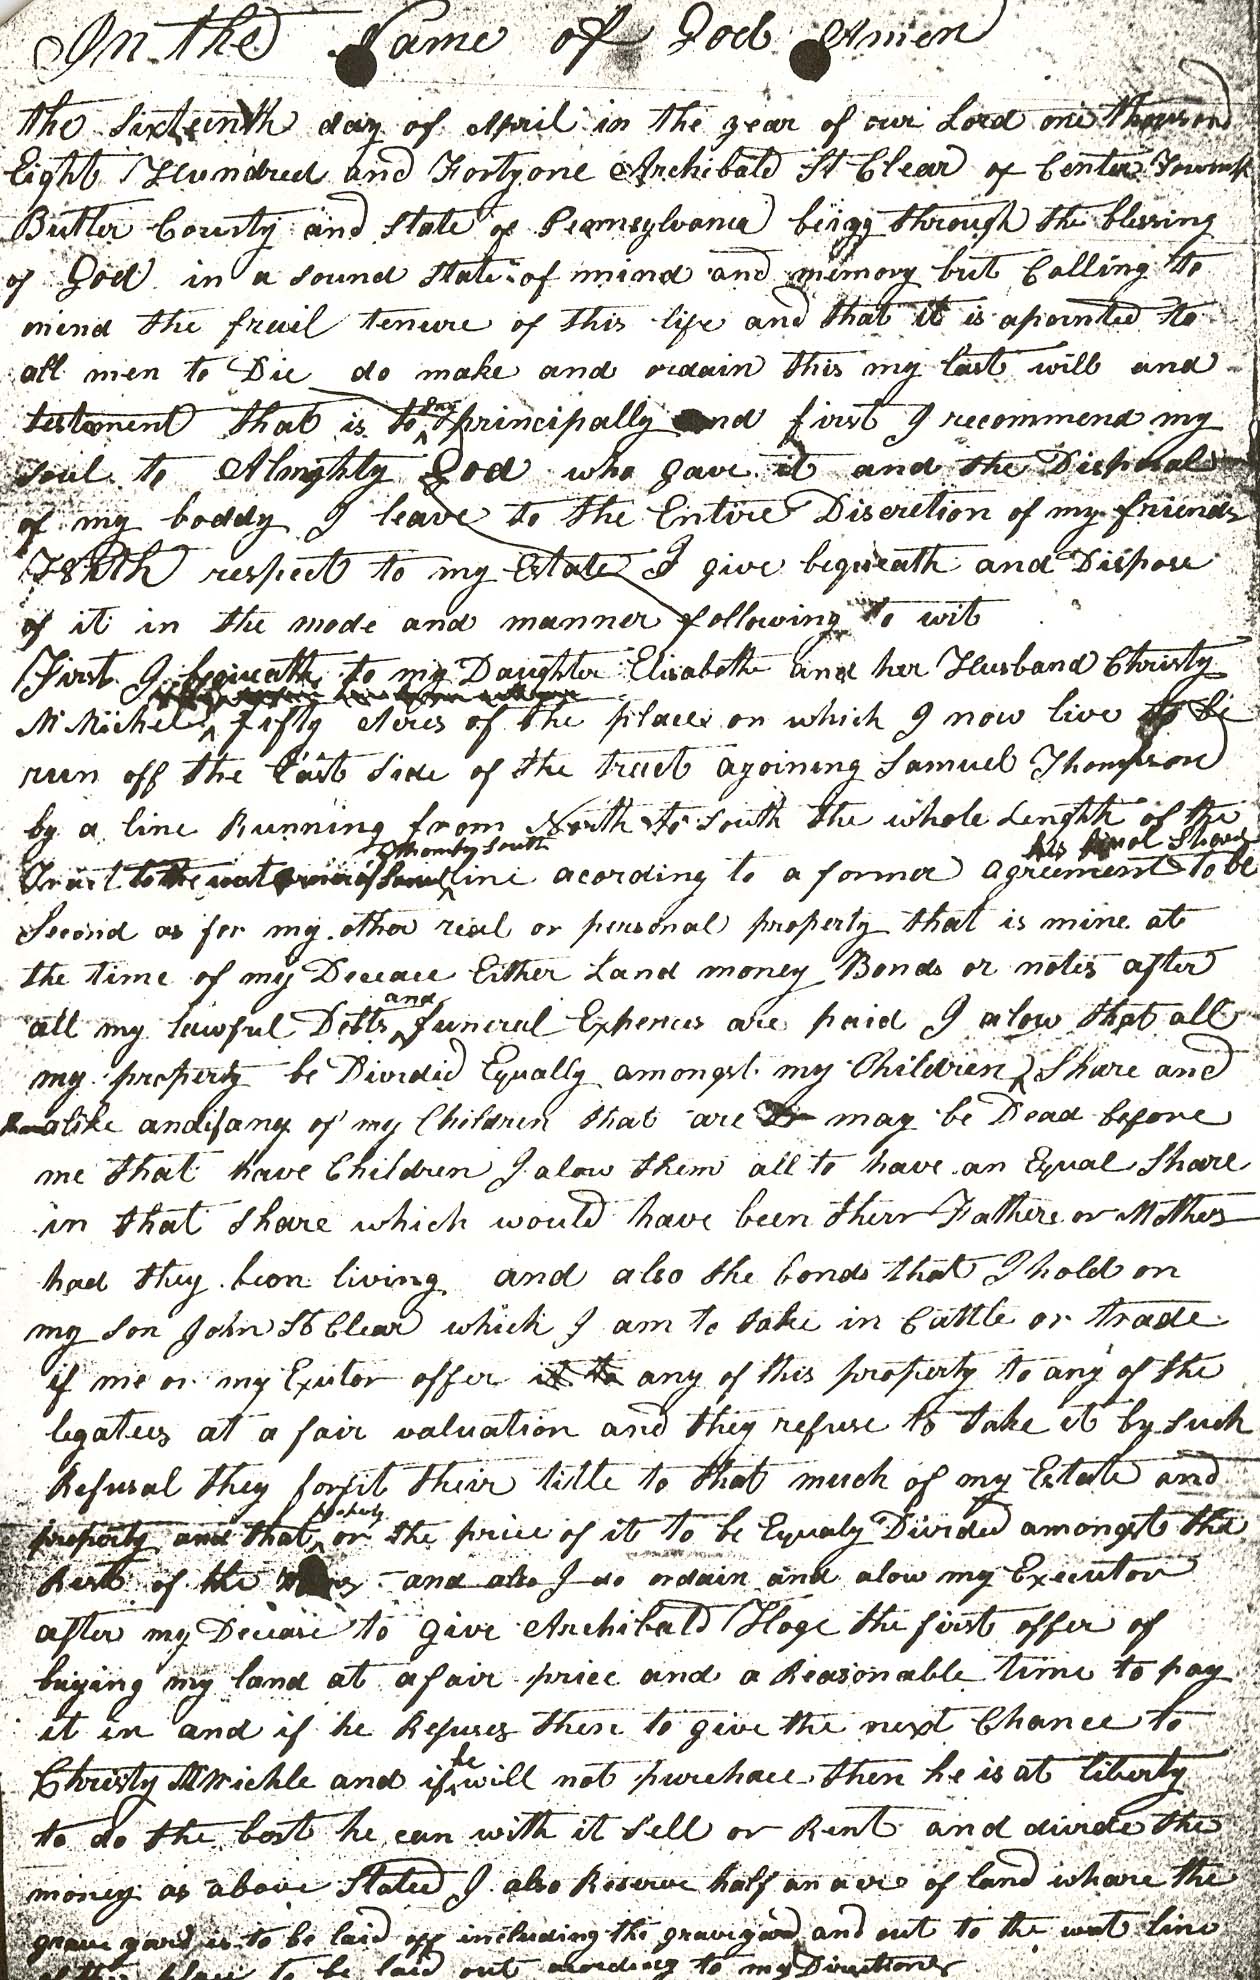 In the Name of God Amen
the Sixteenth day of April in the year of our Lord one thousand
Eight Hundred and Fortyone Archibald St Clear of Center
Butler County and State of Pennsylvania being through the blessing
of God in a sound State of mind and memory but Calling to
mind the frail tenure of this life and that it is apointed to
all men to Die do make and ordain this my last will and
testament that is to say principally and first I recommend my
soul to Almighty God who gave it and the Disposal
of my boddy I leave to the Entire Discretion of my friends
With respect to my Estate I give bequeath and Dispose
of it in the mode and manner following to wit
First I bequeath to my Daughter Elisabeth and her Husband Christy
McMichel fifty Acres of the place on which I now live to be
run off the East Side of the tract ajoining Samuel Thompson
by a line Running from North to South the whole Length of the
Tract to the line acording to a former agreement his final Share to be
Second as for my other real or personal property that is mine at
the time of my Deceace Either Land money Bonds or notes after
all my lawful Debts and funeral Expences are paid I alow that all
my property be Divided Equally amongst my Children Share and
alike and if any of my Children that are may be Dead before
me that have Children I alow them all to have an Equal Share
in that share which would have been their Fathers or Mothers
had they been living and also the bonds that I hold on
my son John St Clear which I am to take in Cattle or trade
if me or my Exutor offer any of this property to any of the
legatees at a fair valuation and they refuse to take it by such
Refusal they forfit their title to that much of my Estate and
property and that property or the price of it to be Equaly Divided amongst the
Rest of the and also I do ordain and alow my Executor
after my Decease to give Archibald Hoge the first offer of
buying my land at a fair price and a Reasonable time to pay
it in and if he Refuses then to give the next Chance to
Christy McMichle and if he will not purchace then he is at liberty
to do the best he can with it Sell or Rent and divide the
money as above Stated I also Reserve half an acre of land whare the
grave yard is to be laid off including the graveyard and out to the west line
of this place to be laid out acording to my Directions